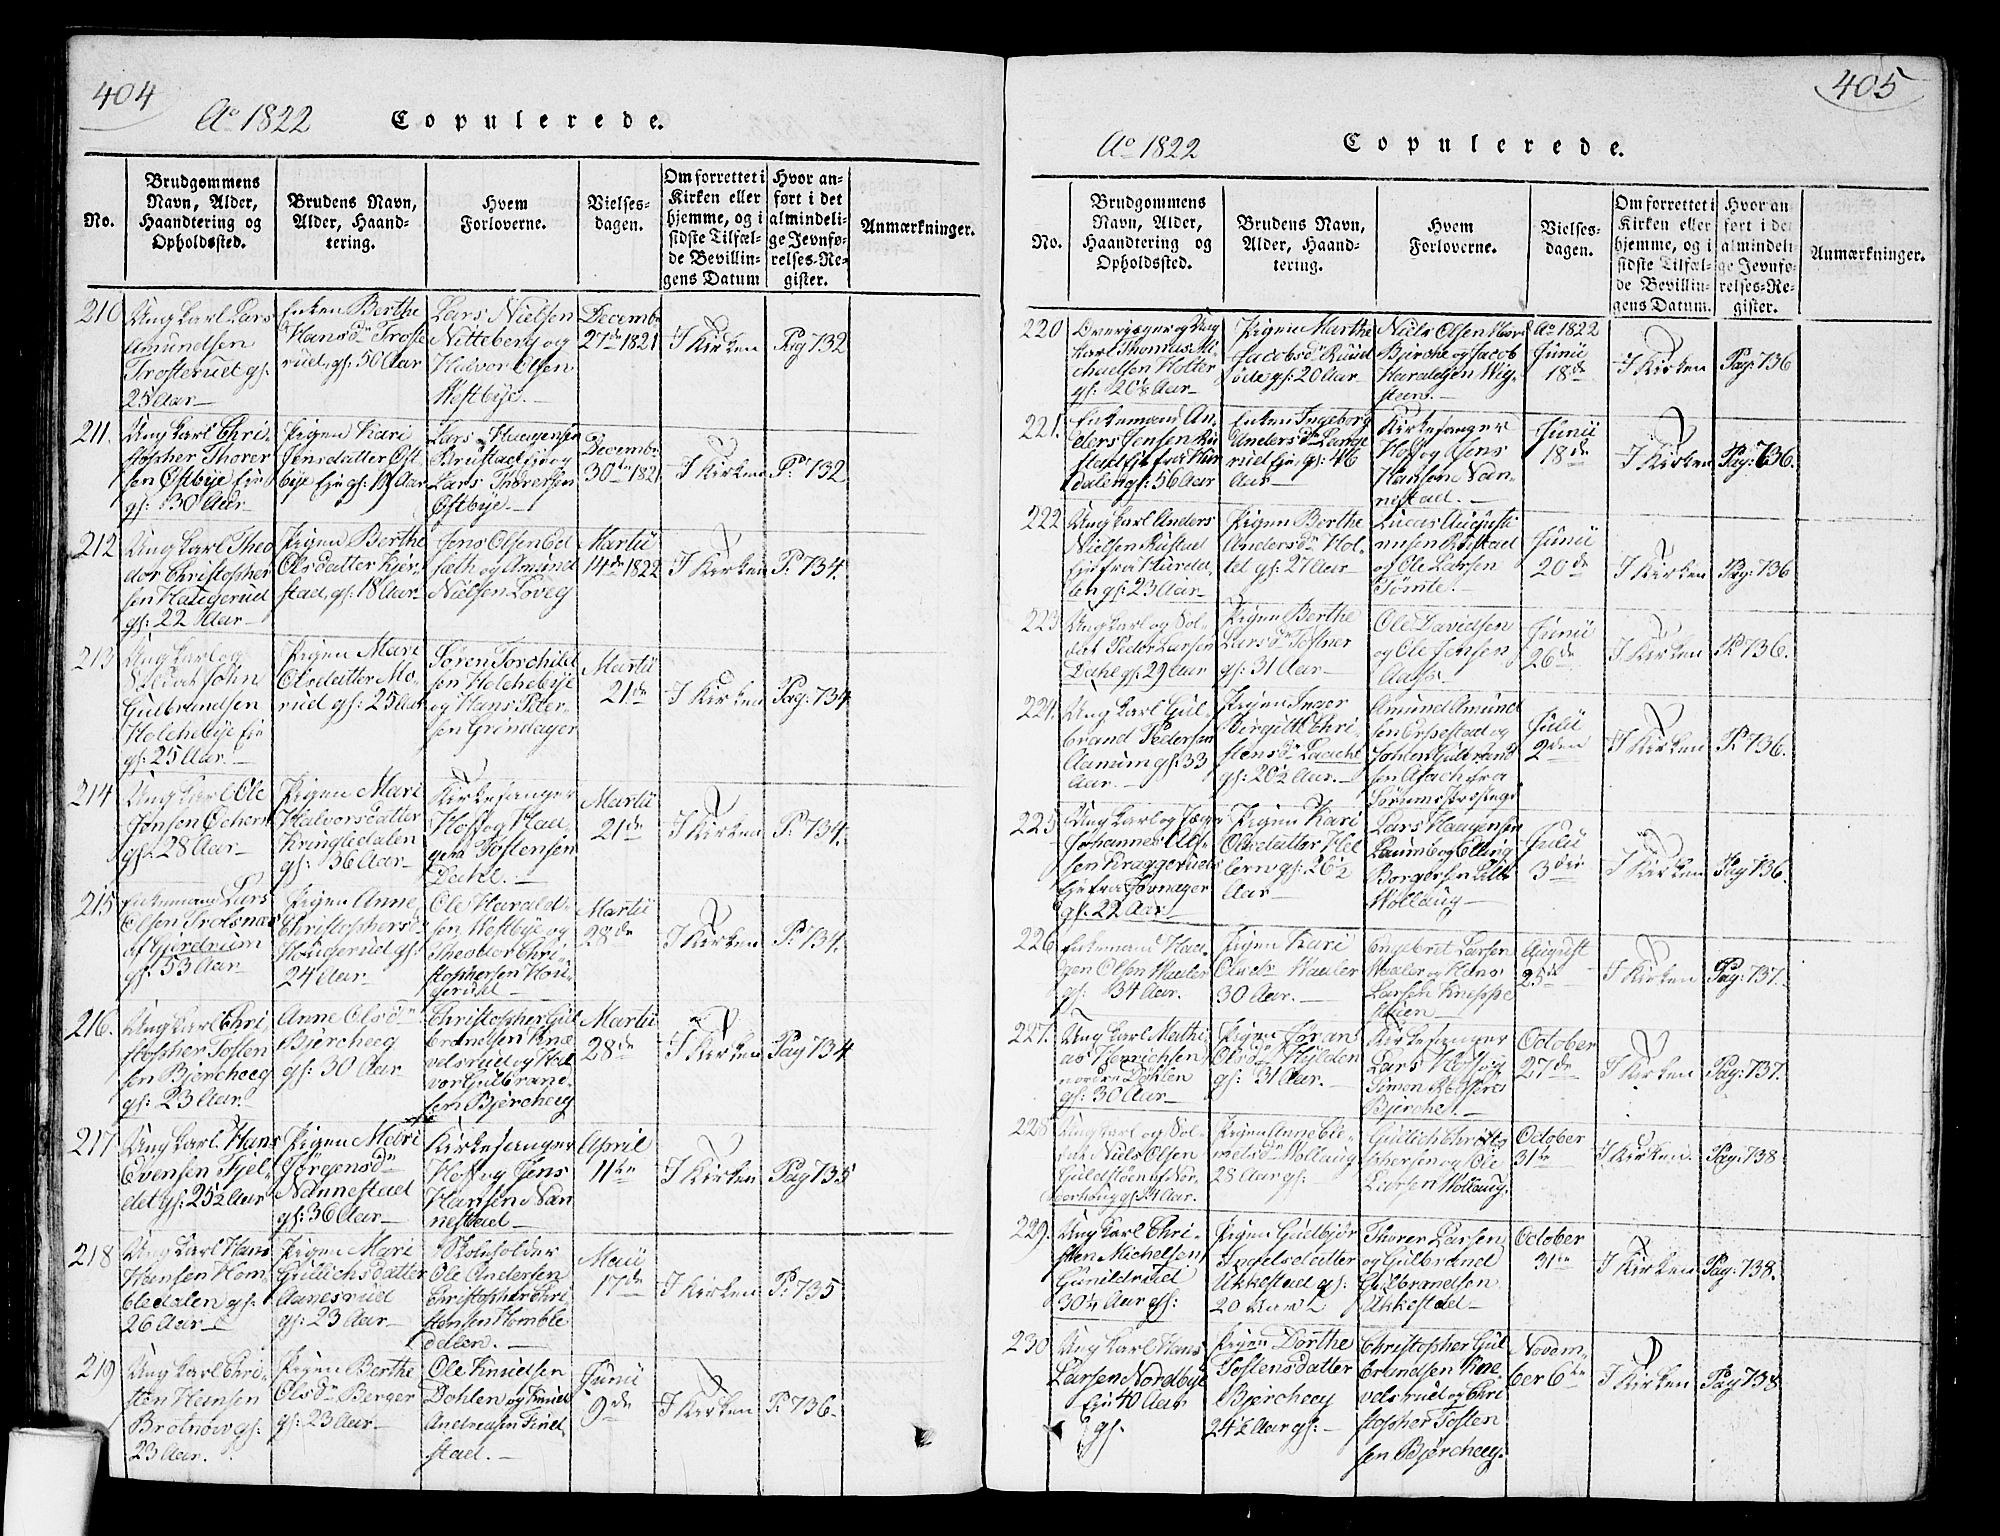 404
Ao 1822 Copulerede.
No.
Brudgommens
Navn, Alder,
Haandtering og
Opholdssted.
Brudens Navn,
Alder, Haand-
tering.
Hvem
Forloverne.
Vielses-
dagen.
Om forrettet i
Kirken eller
hjemme, og i
sidste Tilfæl-
de Bevillin-
gens Datum
Hvor an-
ført i det
almindeli-
ge Jevnfø-
relses-Re-
gister.
Anmærkninger.
210
Ung Karl Lars
Amundsen
Trosterud gs:
25 Aar—
Enken Berthe
Hansdr Troste
rud, gs: 50 Aar
Lars Nielsen
Nitteberg og
Halvor Olsen
Westbye.—
Decembr
27de 1821
I Kirken
Pag 732
211.
Ung Karl Chri-
stopher Thorer
sen Østbye Eje
gs: 30 Aar—
Pigen Kari
Jensdatter Øst
bye Eje gs: 19 Aar
Lars Haagensen
Brustad Eje og
Lars Andersen
Østbye.—
Decembr
30te 1821
I Kirken
P: 732
212
Ung Karl Theo
dor Christopher
sen Haugerud
gs: 22 Aar—
Pigen Berthe
Olsdatter Kjer-
stad, gs: 18 Aar
Jens Olsen
og Amund
Nielsen Løveg
Martii
14de 1822
I Kirken
P: 734.
213
Ung Karl og
Soldat John
Gulbrandsen
Holchebye Eje
gs: 25 Aar.—
Pigen Mari
Olsdatter Mo-
rud gs: 25 Aar
Søren Torchild
sen Holchebye
og Hans Peter-
sen Grindager
Martii
21de
I Kirken
Pag: 734
214
Ung Karl Ole
Jonsen Ochern
gs: 28 Aar—
Pigen Mari
Halvorsdatter
Kringledalen
gs: 36 Aar—
Kirkesanger
Hoff og Haa
gen Tostensen
Dahl.—
Martii
21de
I Kirken
P: 734.
215
Enkemand Lars
Olsen
af Gjerdrum
gs: 53 Aar—
Pigen Anne
Christophersd:
Hougerud gs:
24 Aar—
Ole Harald-
sen Westbye og
Theodor Chri-
stophersen Hou-
gerud—
Martii
28de
I Kirken
P: 734.
216.
Ung Karl Chri
stopher Tosten
sen Bjercheeg
gs: 23 Aar—
Anne Olsdr
Bjercheeg
gs: 30 Aar.
Christopher Gul
brandsen Knæ
velsrud og Hal
vor Gulbrand-
sen Bjercheeg
Martii
28de
I Kirken
Pag 734
217
Ung Karl Hans
Evensen Fjel-
det gs: 25½ Aar
Pigen Mari
Jørgensdr
Nannestad
gs: 36 Aar—
Kirkesanger
Hoff og Jens
Hansen Nan
nestad—
April
11te
I Kirken
Pag 735
218
Ung Karl Hans
Hansen Hom-
bledalen gs:
26 Aar—
Pigen Mari
Gulichsdatter
Aanesrud
gs: 23 Aar—
Skoleholder
Ole Andersen
Christopher Chri
stensen Homble
dalen.—
Maii
17de
I Kirken
P: 735
219
Ung Karl Chri-
sten Hansen
gs:
23 Aar.
Pigen Berthe
Olsdr Berger
gs: 23 Aar—
Ole Knudsen
Dohlen og Knud
Andreasen
stad.—
Junii
9de
I Kirken
P: 736.
405
Ao 1822 Copulerede.
No.
Brudgommens
Navn, Alder,
Haandtering og
Opholdssted.
Brudens Navn,
Alder, Haand-
tering.
Hvem
Forloverne.
Vielses-
dagen.
Om forrettet i
Kirken eller
hjemme, og i
sidste Tilfæl-
de Bevillin-
gens Datum.
Hvor an-
ført i det
almindeli-
ge Jevnfø-
relses-Re-
gister.
Anmærkninger.
220
og Ung
Karl Thomas Mi-
chaelsen Holter
gs: 20⅙ Aar—
Pigen Marthe
Jacobsdr Ruud
gs: 20 Aar—
Niels Olsen
Bjerche og Jacob
Haraldsen Wig-
stein.—
Ao 1822
Junii
18de
I Kirken
Pag: 736
221.
Enkemand An-
ders Jensen
stad Eje fra Hur
dalen gs: 56 Aar
Enken Ingeborg
Andersdr Lange
rud Eje, gs: 46
Aar—
Kirkesanger
Hoff og Jens
Hansen Nan-
nestad.—
Junii
18de
I Kirken
Pag: 736.
222
Ung Karl Anders
Nielsen Rustad
Eje fra Hurda-
len gs: 23 Aar—
Pigen Berthe
Andersdr Hol-
del gs: 27 Aar—
Lucas Augusti
nusen Rustad
og Ole Larsen
Tømte.—
Junii
20de
I Kirken
Pag: 736
223
Ung Karl og Sol-
dat Peder Larsen
Dahl gs: 29 Aar
Pigen Berthe
Larsdr Tostner
gs: 31 Aar—
Ole Davidsen
og Ole Jensen
Aas.—
Junii
26de
I Kirken
P: 736.
224.
Ung Karl Gul-
brand Pedersen
Aamum gs: 33
Aar—
Pigen Inger
Birgitte Chri-
stensdr
gs: 20½ Aar.—
Amund Amund
sen Erpestad og
Johannes Gulbrand
sen Asach fra
Sørums Præstegd
Julii
2den
I Kirken
P: 736.
225
Ung Karl og
Johannes Ol-
sen Kraggerud
Eje fra
gs: 22 Aar
Pigen Kari
Olsdatter Hel
lern gs: 26½
Aar
Lars Haagensen
Laumb og Elling
Borgersen Lille
Wollaug—
Julii
3die
I Kirken
Pag 736.
226
Enkemand Haa-
gen Olsen Waaler
gs: 34 Aar.
Pigen Kari
Olsdr Waaler
30 Aar.—
Engebret Larsen
Waaler og Hans
Larsen Kneppe
August
25de
I Kirken
Pag: 737.
227.
Ung Karl Mathi-
as Henrichsen
nordre Døhlen
gs: 30 Aar—
Pigen Jøran
Olsdr Hylden
gs: 31 Aar.—
Kirkesanger
Lars Hoff og
Simon
Bjerche.—
October
27de
I Kirken
Pag: 737.
228
Ung Karl og Sol-
dat Niels Olsen
Guldsteen af Nor-
derhoug gs: 24 Aar.
Pigen Anne Cle-
metsdr Wollaug
28 Aar gs:
Gulich Christo
phersen og Ole
Larsen Wollaug.
October
31te
I Kirken.
Pag: 738.
229.
Ung Karl Chri-
sten Michelsen
Gunildrud
30¼ Aar gs:
Pigen Gudbjør
Ingelsdatter
Ukkestad gs:
20 Aar—
Thorer Larsen
og Gulbrand
Gulbrandsen
Ukkestad—
October
31te
I Kirken
Pag: 738.
230
Ung Karl Hans
Larsen Nordbye
Eje 40 Aar
gs.
Pigen Dorthe
Tostensdatter
Bjercheeg
24½ Aar gs:—
Christopher Gul
brandsen Knæ
velsrud og Chri
stopher Tosten
sen Bjercheeg.
Novem-
ber 6te
I Kirken
Pag 738